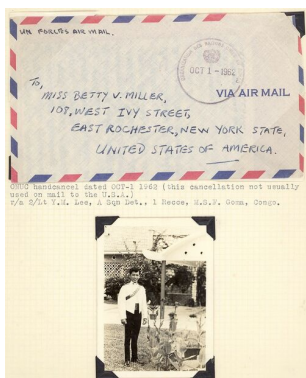 UN FORCES AIR MAIL.
OCT 1-1962
To,
VIA AIR MAIL
MISS BETTY V. MILLER,
108, WEST IVY STREET,
EAST ROCHESTER, NEW YORK STATE,
UNITED STATES OF AMERICA.
ONUC handcancel dated OCT-1 1962 (this cancellation not usually
used on mail to the U.S.A.)
r/a 2/Lt Y.M. Lee, A Sqn Det., 1 Recce, M.S.F. Goma, Congo.